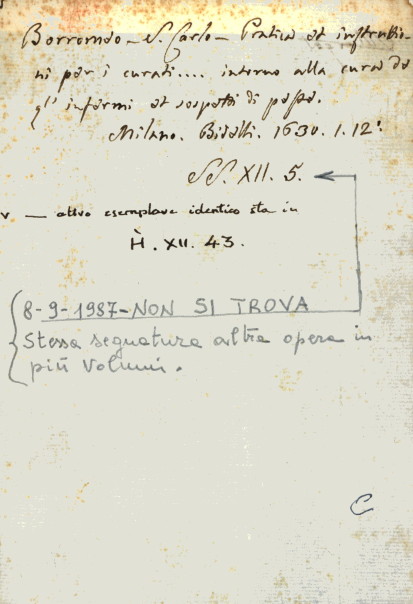 Borromeo - S. Carlo - Pratica et instrutio-
ni per i curati.... intorno alla cura de
gl' infermi et sospetti di peste.
Milano. Bidelli. 1630. 1. 12.°
SS. XII. 5.
v — altro esemplare identico sta in
H. XII. 43.
8-9-1987 - NON SI TROVA
Stessa segnatura altra opera in
più volumi.
C